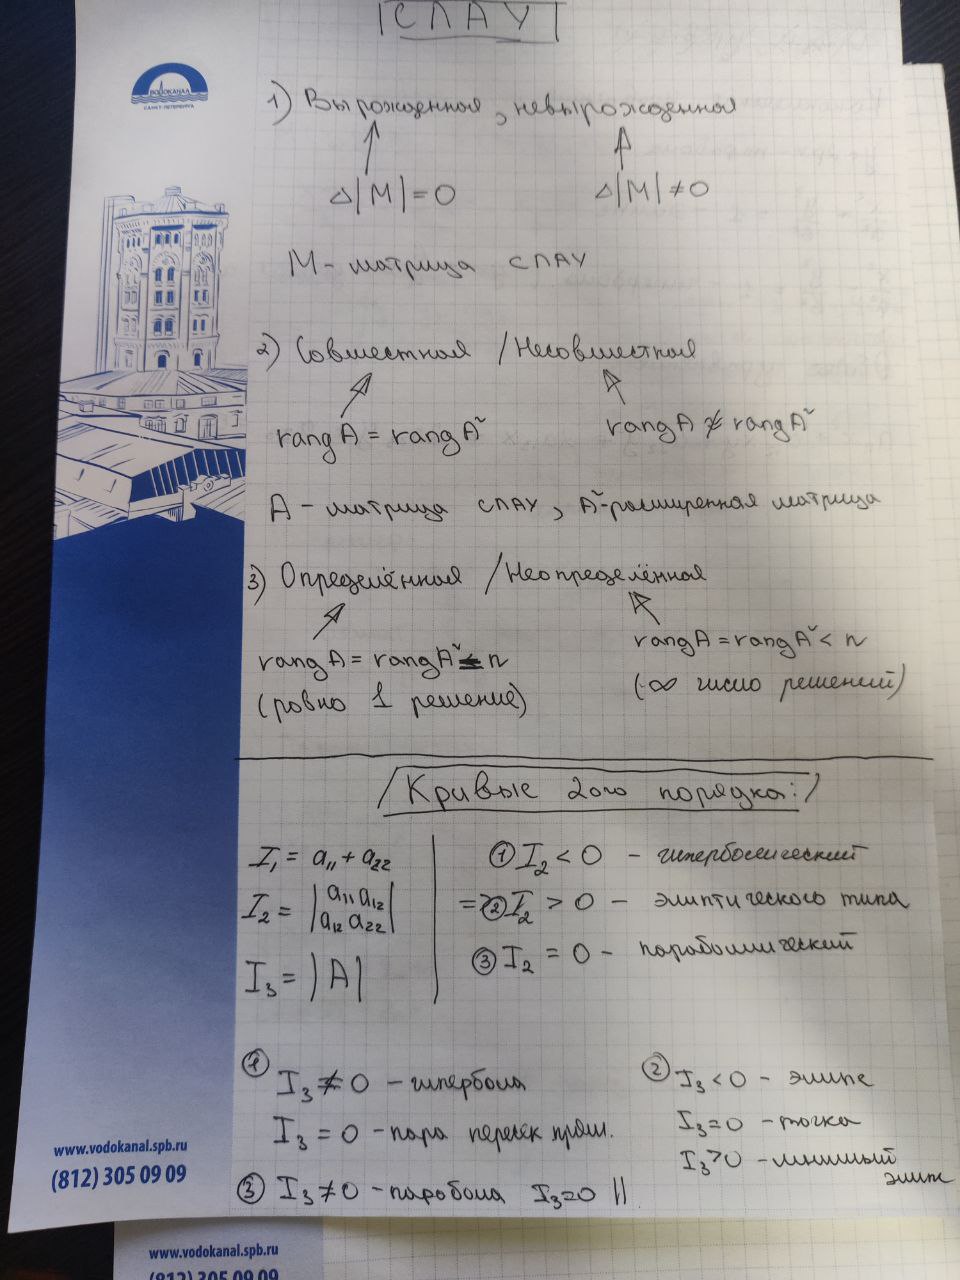 СЛАУ
ВОДОКАНАЛ
САНКТ-ПЕТЕРБУРГА
1) Вырожденная, невырожденная
Δ|M| = 0 Δ|M| ≠ 0
M - матрица СЛАУ
2) Совместная / Несовместная
rang A = rang A˜ rang A ≠ rang A˜
A - матрица СЛАУ, A˜-расширенная матрица
3) Определённая / Неопределённая
rang A = rang A˜ = n rang A = rang A˜ < n
(ровно 1 решение) (∞ число решений)
Кривые 2ого порядка:
I₁ = a₁₁ + a₂₂ ① I₂ < 0 - гиперболический
I₂ = |a₁₁ a₁₂| => ② I₂ > 0 - элиптического типа
|a₁₂ a₂₂|
I₃ = |A| ③ I₂ = 0 - параболический
① I₃ ≠ 0 - гипербола ② I₃ < 0 - элипс
I₃ = 0 - пара пересек прям. I₃ = 0 - точка
I₃ > 0 - мнимый
элипс
③ I₃ ≠ 0 - парабола I₃ = 0 ||
www.vodokanal.spb.ru
(812) 305 09 09
www.vodokanal.spb.ru
(812) 305 09 09